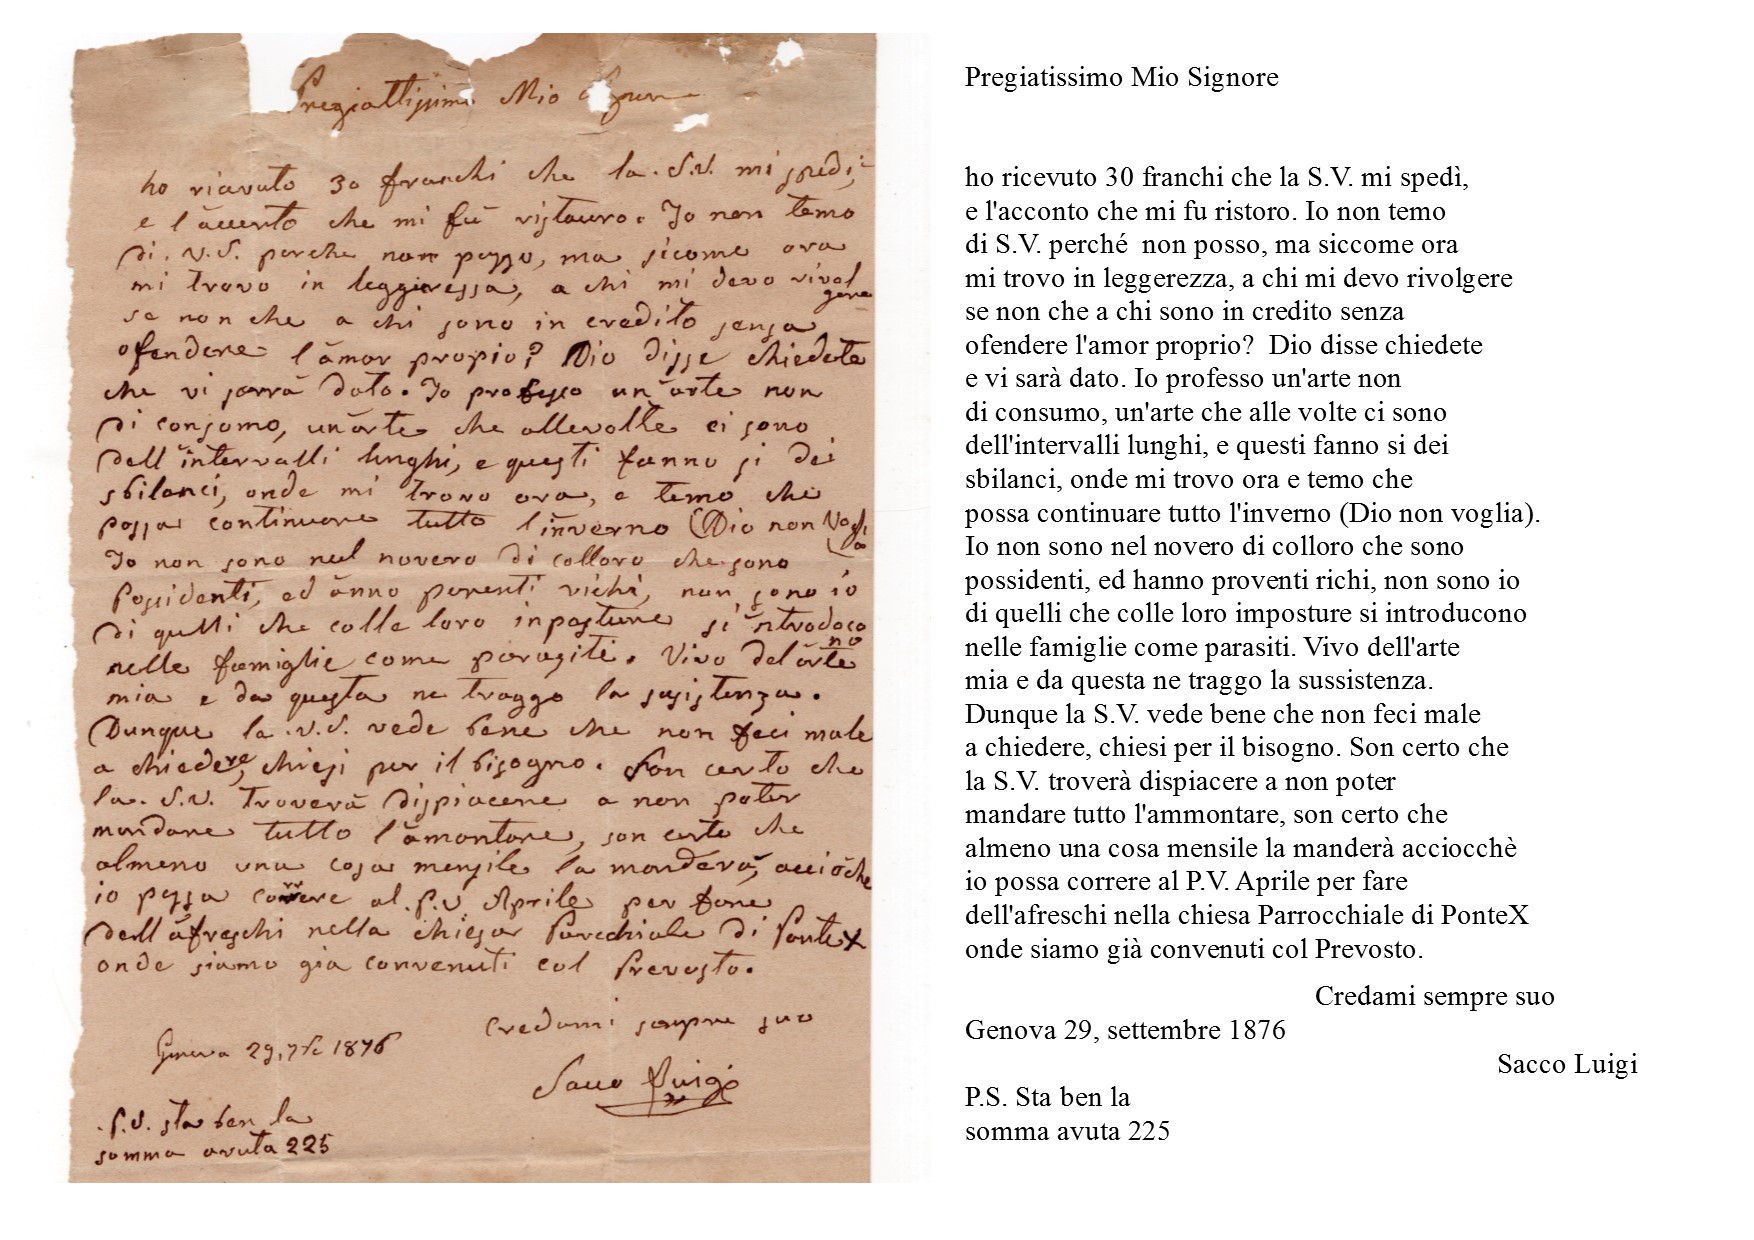 Pregiattissimo Mio
ho ricavuto 30 franchi che la. S.V. mi spedì,
e l'accento che mi fù ristauro. Io non temo
di. V.S. perche non pozzo, ma sicome ora
mi trovo in leggieressa, a chi mi devo rivolgere
se non che a chi sono in credito senza
ofendere l'amor propio? Dio disse chiedete
che vi sarrà dato. Io professo un'arte non
di consomo, un'arte che allevolte ci sono
dell'intervalli lunghi, e questi fanno si dei
sbilanci, onde mi trovo ora, e temo che
possa continuare tutto l'inverno (Dio non voglia
Io non sono nel novero di colloro che sono
possidenti, ed ànno parenti richi, non sono io
di quelli che colle loro inposture si introdocono
nelle famiglie come parasiti. Vivo del'arte
mia e da questa ne traggo la susistenza.
Dunque la .V.S. vede bene che non feci male
a chiedere, chiesi per il bisogno. Son certo che
la. S.V. troverà dispiacere a non poter
mandare tutto l'amontare, son certo che
almeno una cosa mensile la manderà, acciòche
io possa correre al .P.V. Aprile per fare
dell'afreschi nella chiesa Parochiale di PonteX
onde siamo già convenuti col Prevosto.
Credami sempre suo
Genova 29, 7bre 1876
Sacco Luigi
.P.S. sta ben la
somma avuta 225
Pregiatissimo Mio Signore
ho ricevuto 30 franchi che la S.V. mi spedì,
e l'acconto che mi fu ristoro. Io non temo
di S.V. perché non posso, ma siccome ora
mi trovo in leggerezza, a chi mi devo rivolgere
se non che a chi sono in credito senza
ofendere l'amor proprio? Dio disse chiedete
e vi sarà dato. Io professo un'arte non
di consumo, un'arte che alle volte ci sono
dell'intervalli lunghi, e questi fanno si dei
sbilanci, onde mi trovo ora e temo che
possa continuare tutto l'inverno (Dio non voglia).
Io non sono nel novero di colloro che sono
possidenti, ed hanno proventi richi, non sono io
di quelli che colle loro imposture si introducono
nelle famiglie come parasiti. Vivo dell'arte
mia e da questa ne traggo la sussistenza.
Dunque la S.V. vede bene che non feci male
a chiedere, chiesi per il bisogno. Son certo che
la S.V. troverà dispiacere a non poter
mandare tutto l'ammontare, son certo che
almeno una cosa mensile la manderà acciocchè
io possa correre al P.V. Aprile per fare
dell'afreschi nella chiesa Parrocchiale di PonteX
onde siamo già convenuti col Prevosto.
Credami sempre suo
Genova 29, settembre 1876
Sacco Luigi
P.S. Sta ben la
somma avuta 225